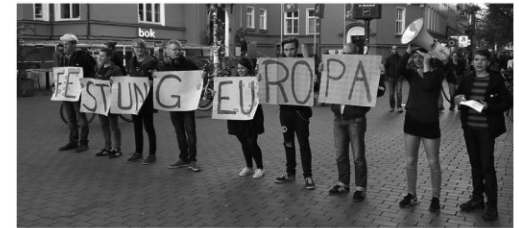 bok
FESTUNG EUROPA